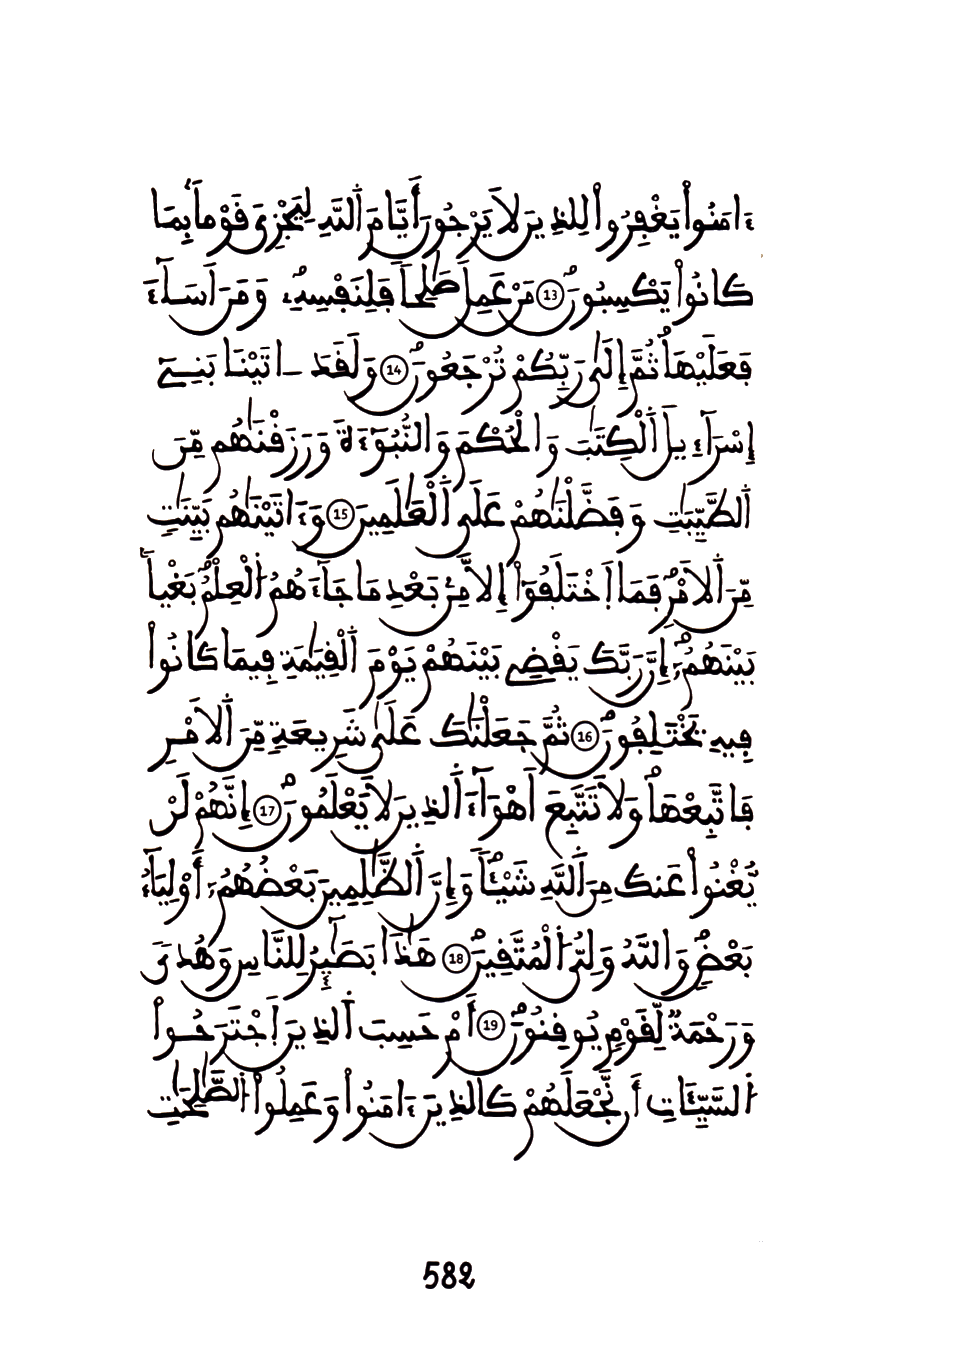 ءَامَنُواْ يَغْفِرُواْ لِلذِينَ لَا يَرْجُونَ أَيَّامَ اَ۬للَّهِ لِيَجْزِيَ قَوْماَۢ بِمَا
كَانُواْ يَكْسِبُونَۖ 13 مَنْ عَمِلَ صَٰلِحاٗ فَلِنَفْسِهِۦۖ وَمَنَ اَسَآءَ
فَعَلَيْهَاۖ ثُمَّ إِلَىٰ رَبِّكُمْ تُرْجَعُونَۖ 14 وَلَقَدَ اٰتَيْنَا بَنِےٓ
إِسْرَآءِيلَ اَ۬لْكِتَٰبَ وَالْحُكْمَ وَالنُّبُوٓءَةَ وَرَزَقْنَٰهُم مِّنَ
اَ۬لطَّيِّبَٰتِ وَفَضَّلْنَٰهُمْ عَلَى اَ۬لْعَٰلَمِينَ 15 وَءَاتَيْنَٰهُم بَيِّنَٰتٖ
مِّنَ اَ۬لَامْرِۖ فَمَا اَ۪خْتَلَفُوٓاْ إِلَّا مِنۢ بَعْدِ مَا جَآءَهُمُ اُ۬لْعِلْمُۖ بَغْياَۢ
بَيْنَهُمُۥٓۖ إِنَّ رَبَّكَ يَقْضِے بَيْنَهُمْ يَوْمَ اَ۬لْقِيَٰمَةِ فِيمَا كَانُواْ
فِيهِ يَخْتَلِفُونَۖ 16 ثُمَّ جَعَلْنَٰكَ عَلَىٰ شَرِيعَةٖ مِّنَ اَ۬لَامْرِ
فَاتَّبِعْهَاۖ وَلَا تَتَّبِعَ اَهْوَآءَ اَ۬لذِينَ لَا يَعْلَمُونَۖ 17 إِنَّهُمْ لَنْ
يُّغْنُواْ عَنكَ مِنَ اَ۬للَّهِ شَيْـٔاٗۖ وَإِنَّ اَ۬لظَّٰلِمِينَ بَعْضُهُمُۥٓ أَوْلِيَآءُ
بَعْضٖۖ وَاللَّهُ وَلِيُّ اُ۬لْمُتَّقِينَۖ 18 هَٰذَا بَصَٰٓئِرُ لِلنَّاسِ وَهُدىٗ
وَرَحْمَةٞ لِّقَوْمٖ يُوقِنُونَۖ 19 أَمْ حَسِبَ اَ۬لذِينَ اَ۪جْتَرَحُواْ
اُ۬لسَّيِّـَٔاتِ أَن نَّجْعَلَهُمْ كَالذِينَ ءَامَنُواْ وَعَمِلُواْ اُ۬لصَّٰلِحَٰتِ
582